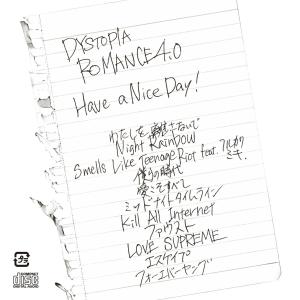 DYSTOPIA
ROMANCE 4.0
Have a Nice Day!
わたしを
Night Rainbow
Smells Like Teenage Riot feat. フルカワミキ
僕らの時代
愛こそすべて
ミッドナイトタイムライン
Kill All Internet
ファウスト
LOVE SUPREME
エスケイプ
フォーエバーヤング
COMPACT
disc
DIGITAL AUDIO